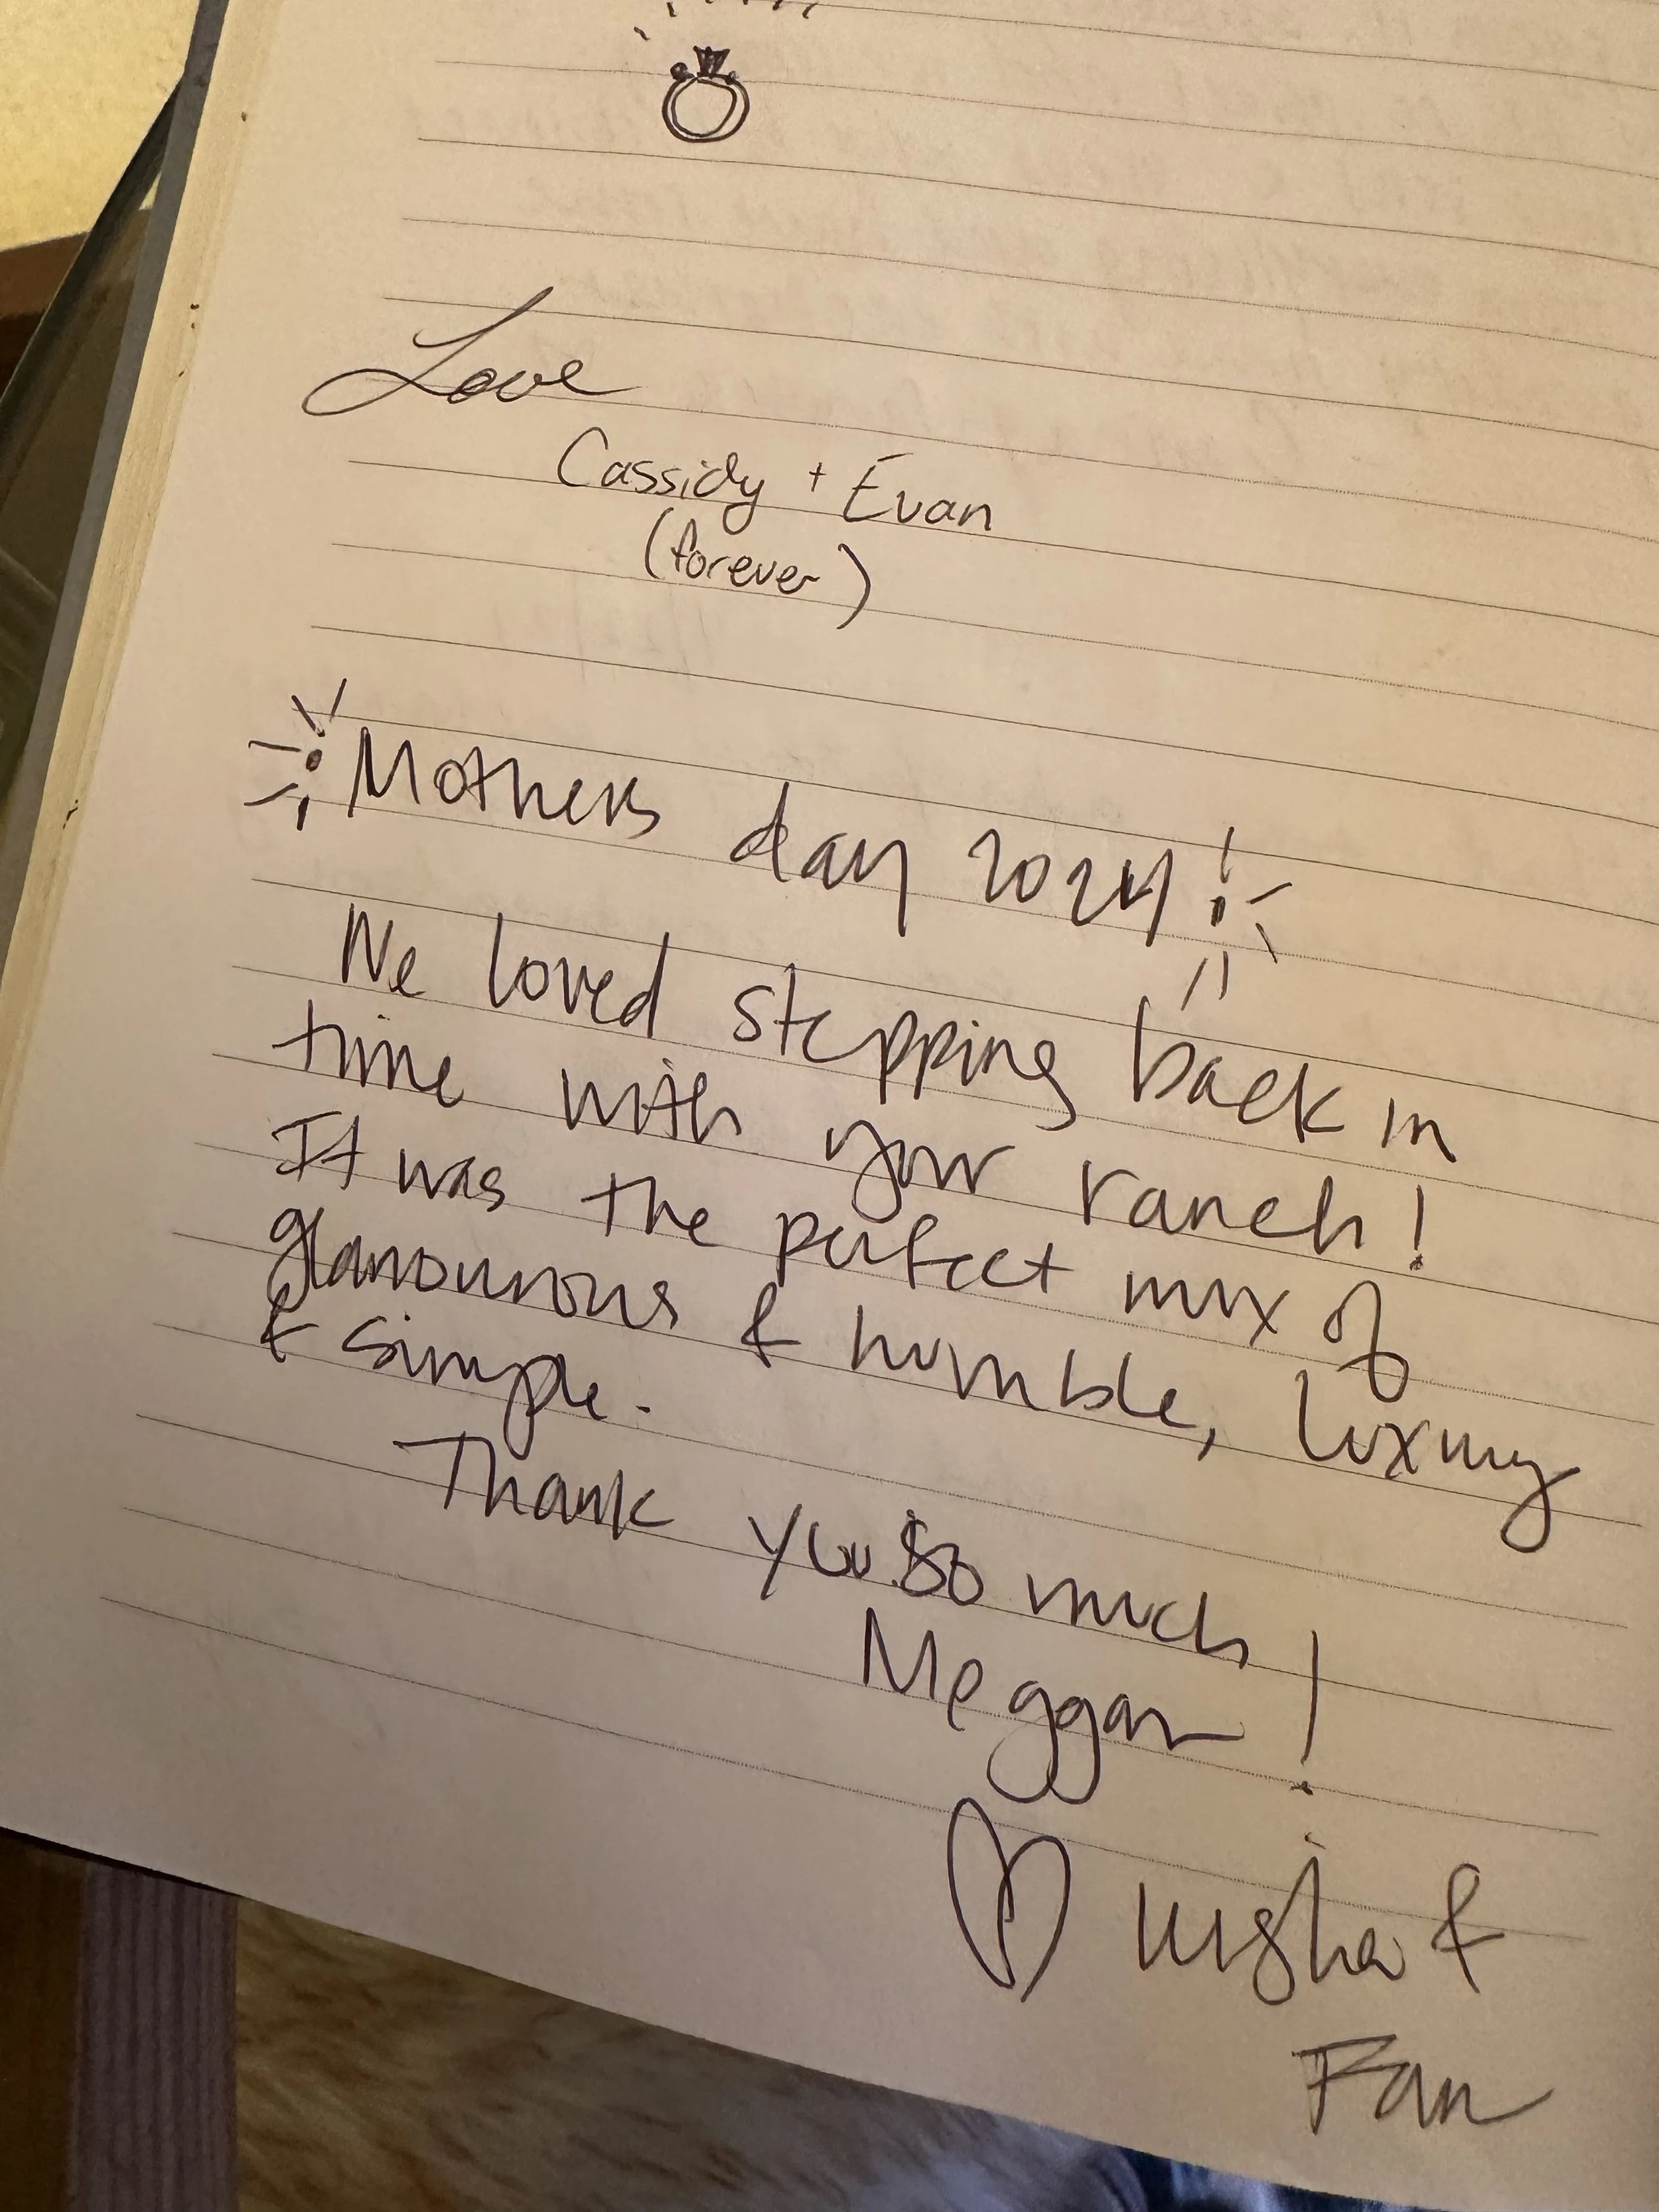 Love
Cassidy + Evan
(forever)
Mothers day 2024!
We loved stepping back in
time with your ranch!
It was the perfect mix of
glamourous & humble, luxury
& simple.
Thank you so much
Meggan!
&
Fam